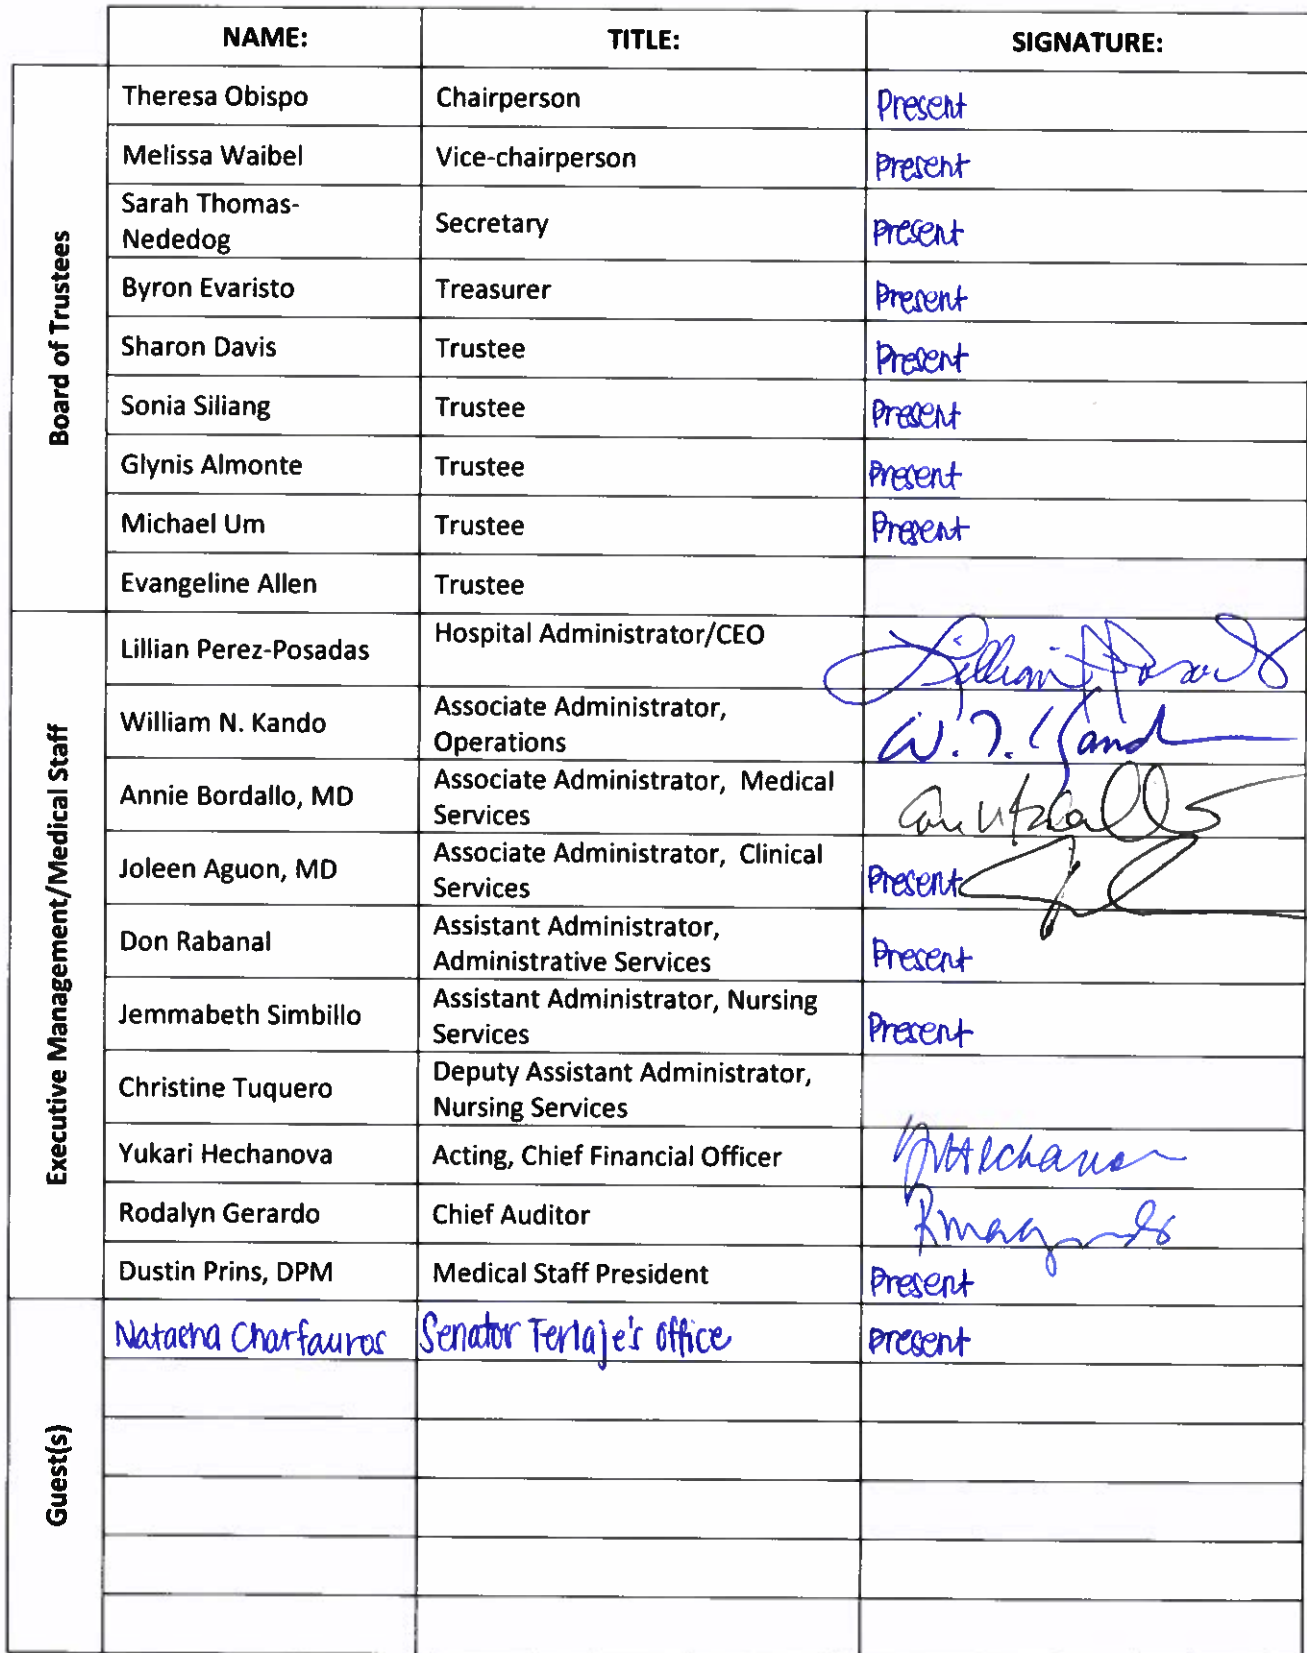 NAME: TITLE: SIGNATURE:
Board of Trustees
Theresa Obispo Chairperson Present
Melissa Waibel Vice-chairperson Present
Sarah Thomas-
Nededog Secretary Present
Byron Evaristo Treasurer Present
Sharon Davis Trustee Present
Sonia Siliang Trustee Present
Glynis Almonte Trustee Present
Michael Um Trustee Present
Evangeline Allen Trustee
Executive Management/Medical Staff
Lillian Perez-Posadas Hospital Administrator/CEO
William N. Kando Associate Administrator,
Operations
Annie Bordallo, MD Associate Administrator, Medical
Services
Joleen Aguon, MD Associate Administrator, Clinical
Services Present
Don Rabanal Assistant Administrator,
Administrative Services Present
Jemmabeth Simbillo Assistant Administrator, Nursing
Services Present
Christine Tuquero Deputy Assistant Administrator,
Nursing Services
Yukari Hechanova Acting, Chief Financial Officer
Rodalyn Gerardo Chief Auditor
Dustin Prins, DPM Medical Staff President Present
Guest(s)
Nataena Charfauros Senator Terlaje's office present